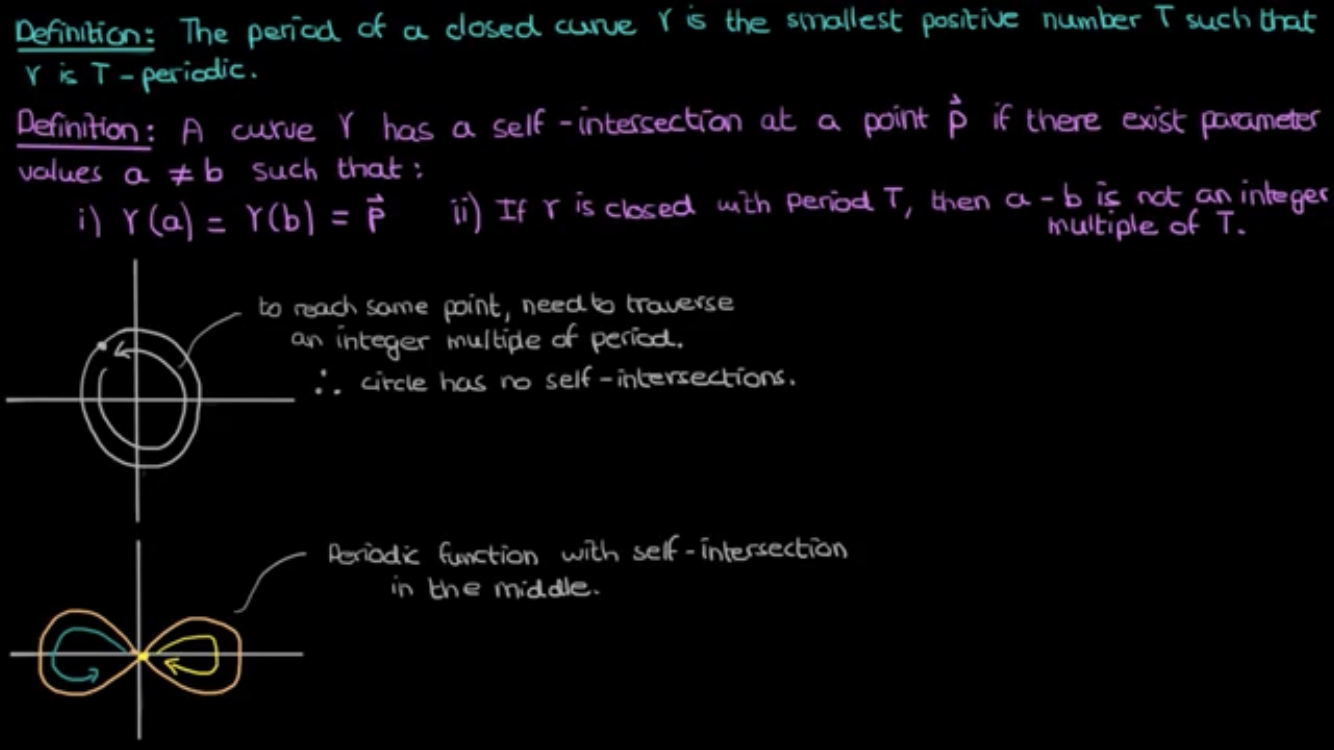 Definition: The period of a closed curve γ is the smallest positive number T such that
γ is T-periodic.
Definition: A curve γ has a self-intersection at a point p⃗ if there exist parameter
values a ≠ b such that:
i) γ(a) = γ(b) = p⃗ ii) If γ is closed with period T, then a - b is not an integer
multiple of T.
to reach same point, need to traverse
an integer multiple of period.
∴ circle has no self-intersections.
Periodic function with self-intersection
in the middle.